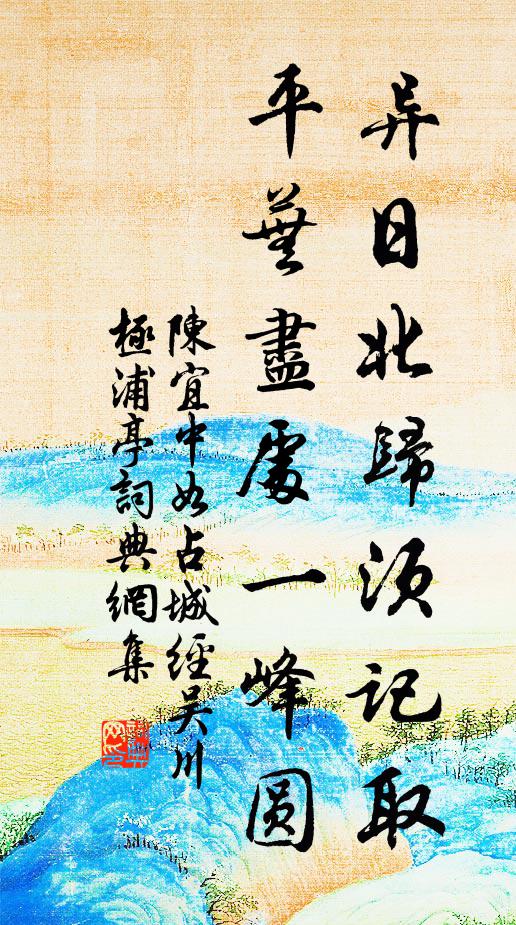 异日北歸須記取
平蕪盡處一峰圓
陳宜中如占城經吴川
極浦亭詞典網集